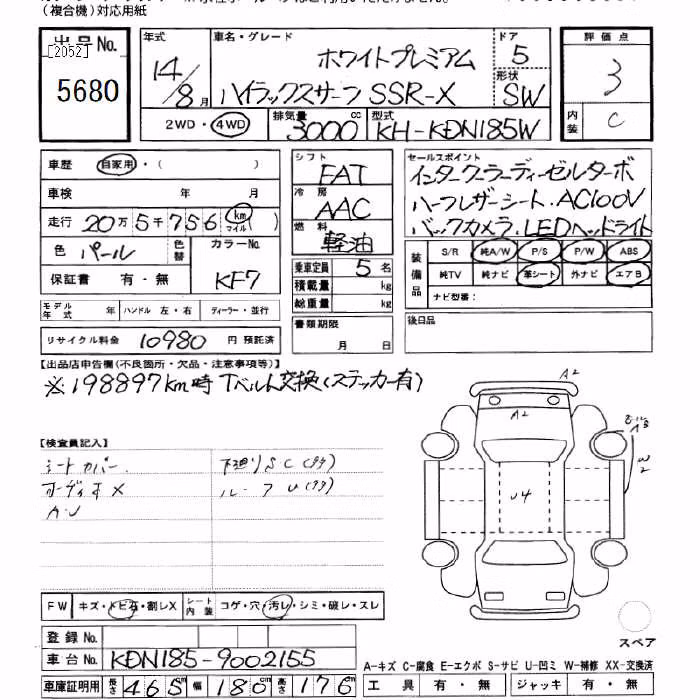 (複合機)対応用紙
出品No.
[2052]
5680
年式 車名・グレード ドア 評価点
ホワイトプレミアム 5
14/8月 ハイラックスサーフ SSR-X 形状 SW 3
2WD・4WD 排気量 3000cc 型式 KH-KDN185W 内装 C
車歴 自家用・( )
車検 年 月
走行 20万5千756 km マイル( )
色 パール 色替 カラーNo. KF7
保証書 有・無
モデル年式 年 ハンドル 左・右 ディーラー・並行
リサイクル料金 10980 円 預託済
シフト FAT
冷房 AAC
燃料 軽油
乗車定員 5 名
積載量 kg
総重量 kg
書類期限
月 日
セールスポイント
インタークーラーディーゼルターボ
ハーフレザーシート・AC100V
バックカメラ・LEDヘッドライト
装備品 S/R 純A/W P/S P/W ABS
純TV 純ナビ 革シート 外ナビ エアB
ナビ型番:
後日品
【出品店申告欄(不良箇所・欠品・注意事項等)】
※198897km時 Tベルト交換(ステッカー有)
【検査員記入】
シートカバー 下廻りSC(タタ)
オーディオX ルーフU(タタ)
A・U
A2
A2
W2
U4
FW キズ・トビ石・割レX シート内装 コゲ・穴・汚レ・シミ・破レ・スレ
登録No.
車台No. KDN185-9002155
車庫証明用 長さ 465cm 幅 180cm 高さ 176cm
スペア
A-キズ C-腐食 E-エクボ S-サビ U-凹ミ W-補修 XX-交換済
工具 有・無 ジャッキ 有・無